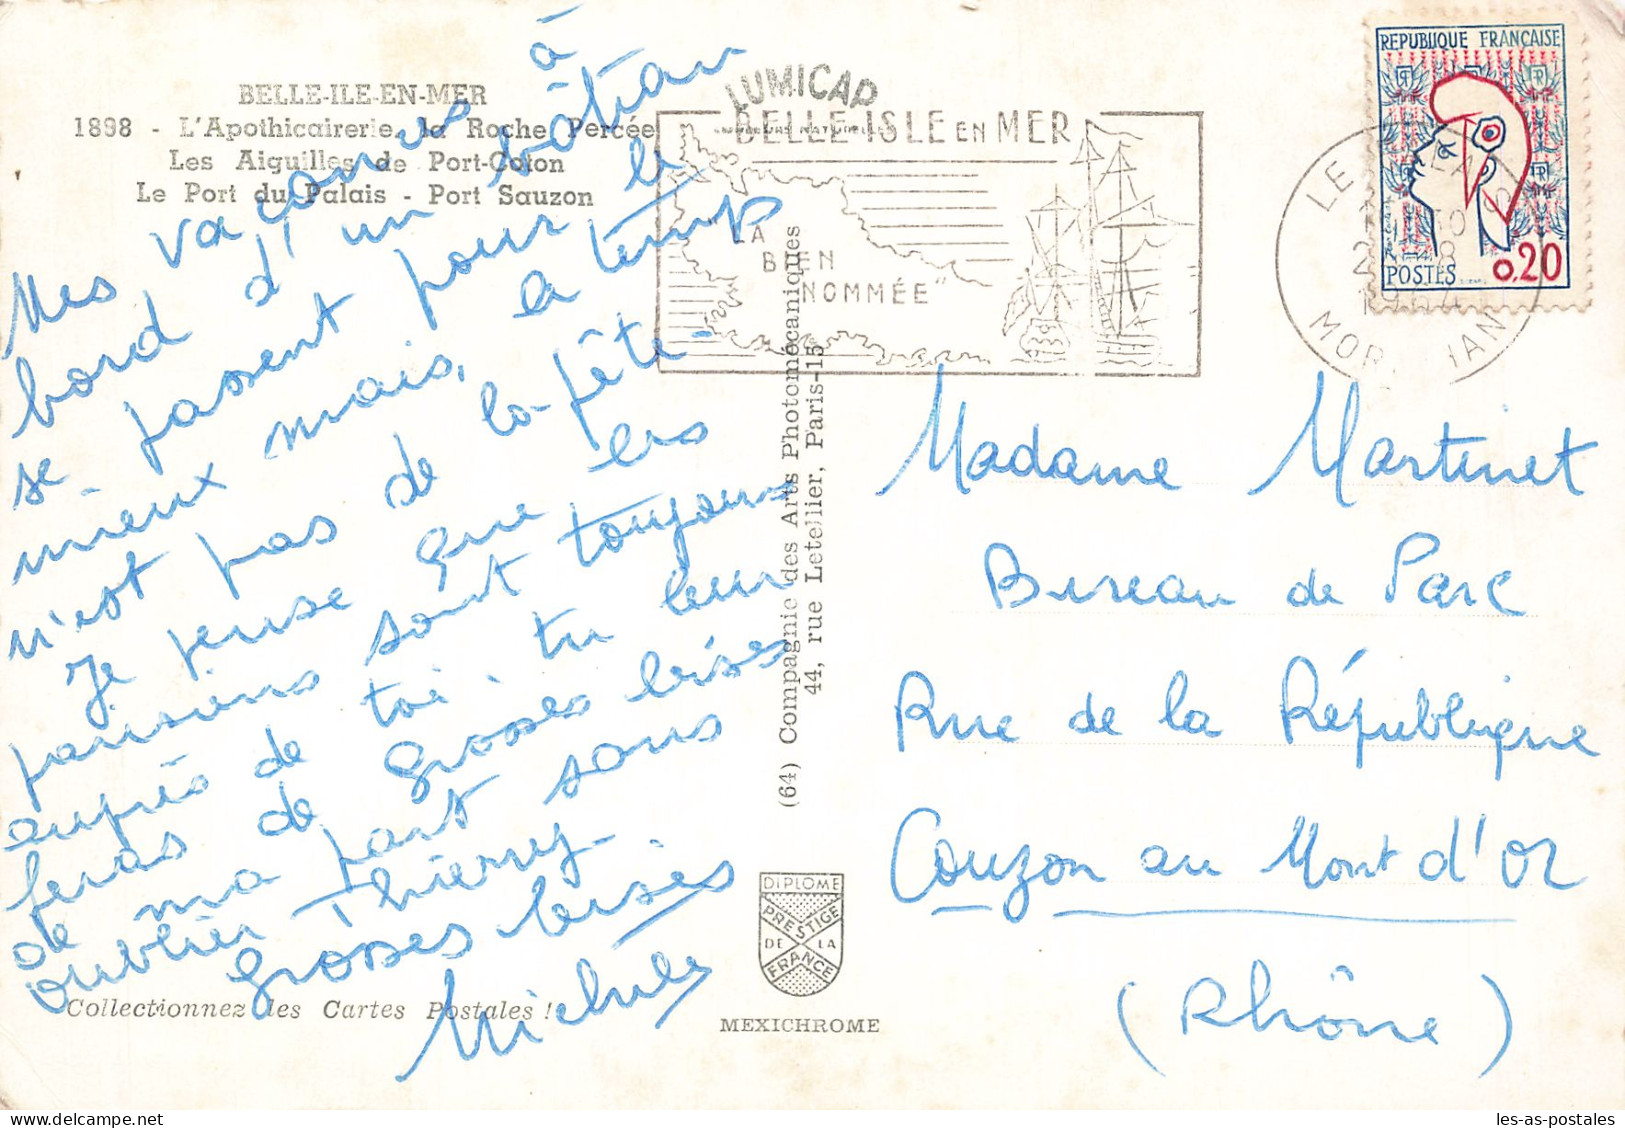 BELLE-ILE-EN-MER
1898 - L'Apothicairerie, la Roche Percée
Les Aiguilles de Port-Coton
Le Port du Palais - Port Sauzon
Mes vacances à
bord d'un bâteau
se passent pour le
mieux mais, le temps
n'est pas de la fête.
Je pense que les
parisiens sont toujours
auprès de toi. tu leur
feras de grosses bises
de ma part sans
oublier Thierry
Grosses bises
Michèle
Collectionnez les Cartes Postales !
LUMICAP
COULEURS NATURELLES
BELLE-ISLE EN MER
"LA
BIEN
NOMMÉE"
(64) Compagnie des Arts Photomécaniques
44, rue Letellier, Paris-15
DIPLOME
PRESTIGE
DE LA
FRANCE
MEXICHROME
REPUBLIQUE FRANÇAISE
POSTES
0,20
LE PALAIS
1964
MORBIHAN
Madame Martinet
Bureau de Parc
Rue de la République
Couzon au Mont d'Or
(Rhône)
les-as-postales